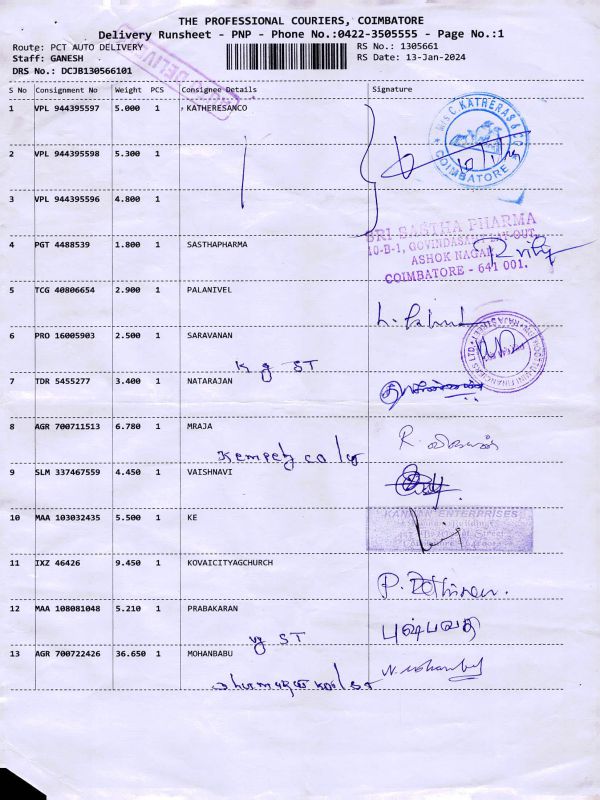 THE PROFESSIONAL COURIERS, COIMBATORE
Delivery Runsheet - PNP - Phone No.:0422-3505555 - Page No.:1
Route: PCT AUTO DELIVERY RS No.: 1305661
Staff: GANESH RS Date: 13-Jan-2024
DRS No.: DCJB130566101
S No Consignment No Weight PCS Consignee Details Signature
1 VPL 944395597 5.000 1 KATHERESANCO
M/S C. KATHERAS & CO
COIMBATORE
2 VPL 944395598 5.300 1
3 VPL 944395596 4.800 1
SRI SASTHA PHARMA
10-B-1, GOVINDASAMY LAY-OUT,
ASHOK NAGAR
COIMBATORE - 641 001.
4 PGT 4488539 1.800 1 SASTHAPHARMA
5 TCG 40806654 2.900 1 PALANIVEL
6 PRO 16005903 2.500 1 SARAVANAN
K g ST
7 TDR 5455277 3.400 1 NATARAJAN
8 AGR 700711513 6.780 1 MRAJA
R.
9 SLM 337467559 4.450 1 VAISHNAVI
10 MAA 103032435 5.500 1 KE
KANNAN ENTERPRISES
11 IXZ 46426 9.450 1 KOVAICITYAGCHURCH
12 MAA 108081048 5.210 1 PRABAKARAN
புஷ்பவதி
vg ST
13 AGR 700722426 36.650 1 MOHANBABU